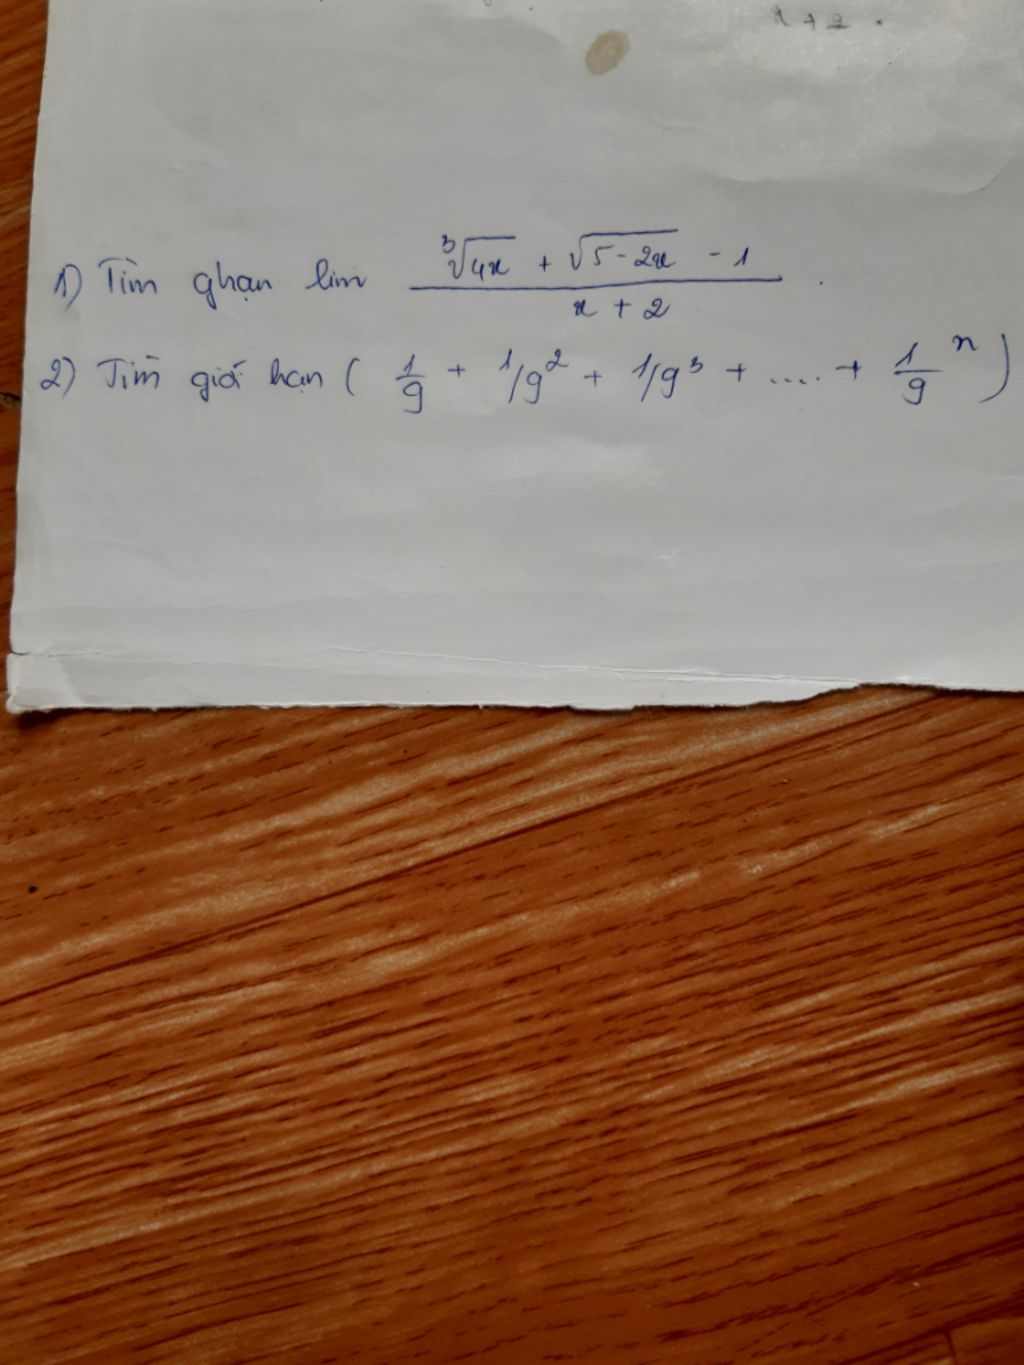 x + 2 .
1) Tìm ghạn lim (∛(4x) + √(5-2x) - 1)/(x + 2) .
2) Tìm giới hạn ( 1/9 + 1/9² + 1/9³ + .... + 1/9 ⁿ )